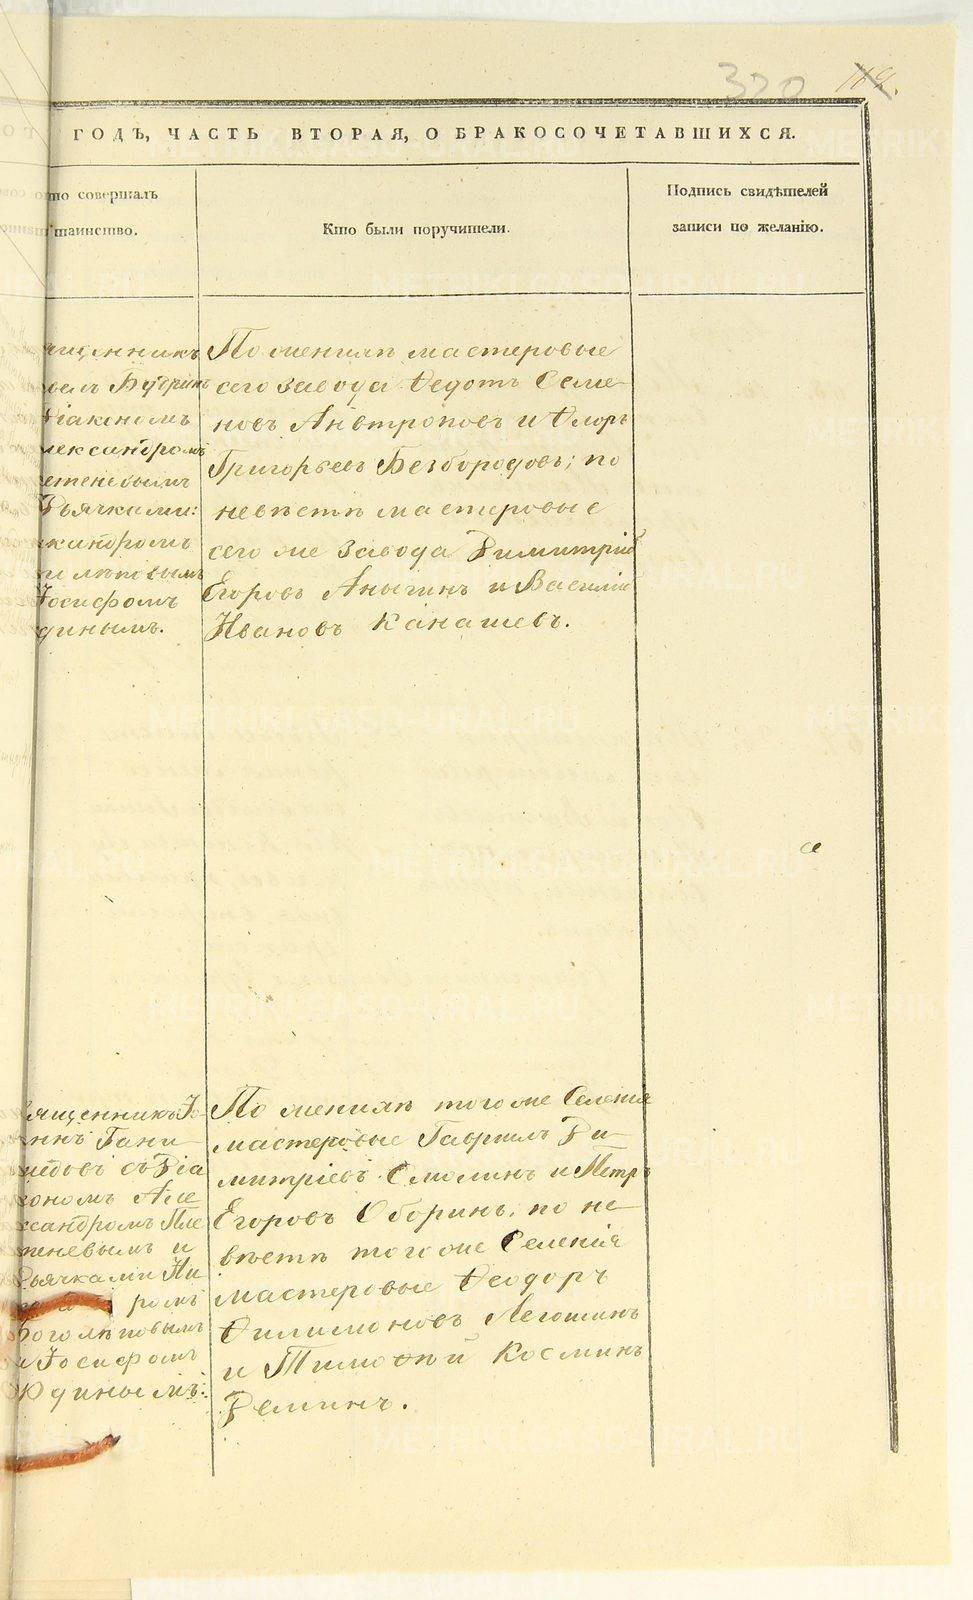 320
ГОДЪ, ЧАСТЬ ВТОРАЯ, О БРАКОСОЧЕТАВШИХСЯ.
то совершалъ
таинство.
Кто были поручители.
Подпись свидѣтелей
записи по желанію.
ященникъ
Бубринъ
Діакономъ
лександромъ
етеневымъ
Дьячками:
икандромъ
лѣповымъ
Іосифомъ
диными.
По женихѣ мастеровые
сего завода Ѳедотъ Семе-
новъ Антроповъ и Флоръ
Григорьевъ Безбородовъ; по
невѣстѣ мастеровые
сего же завода Димитрій
Егоровъ Аныгинъ и Василій
Ивановъ Канашевъ.
ященникъ Іо-
аннъ Гани-
медовъ съ Діа
кономъ Але
ксандромъ Пле
теневымъ и
Дьячками Ни
ромъ
Боголѣповымъ
и Іосифомъ
Юдинымъ:
По женихѣ того же Селенія
мастеровые Гавріилъ Ди-
митріевъ Смолинъ и Петръ
Егоровъ Оборинъ; по не-
вѣстѣ того же Селенія
мастеровые Ѳеодоръ
Филимоновъ Легошинъ
и Тимоѳей Косминъ
Деминъ.
METRIKI.GASO-URAL.RU